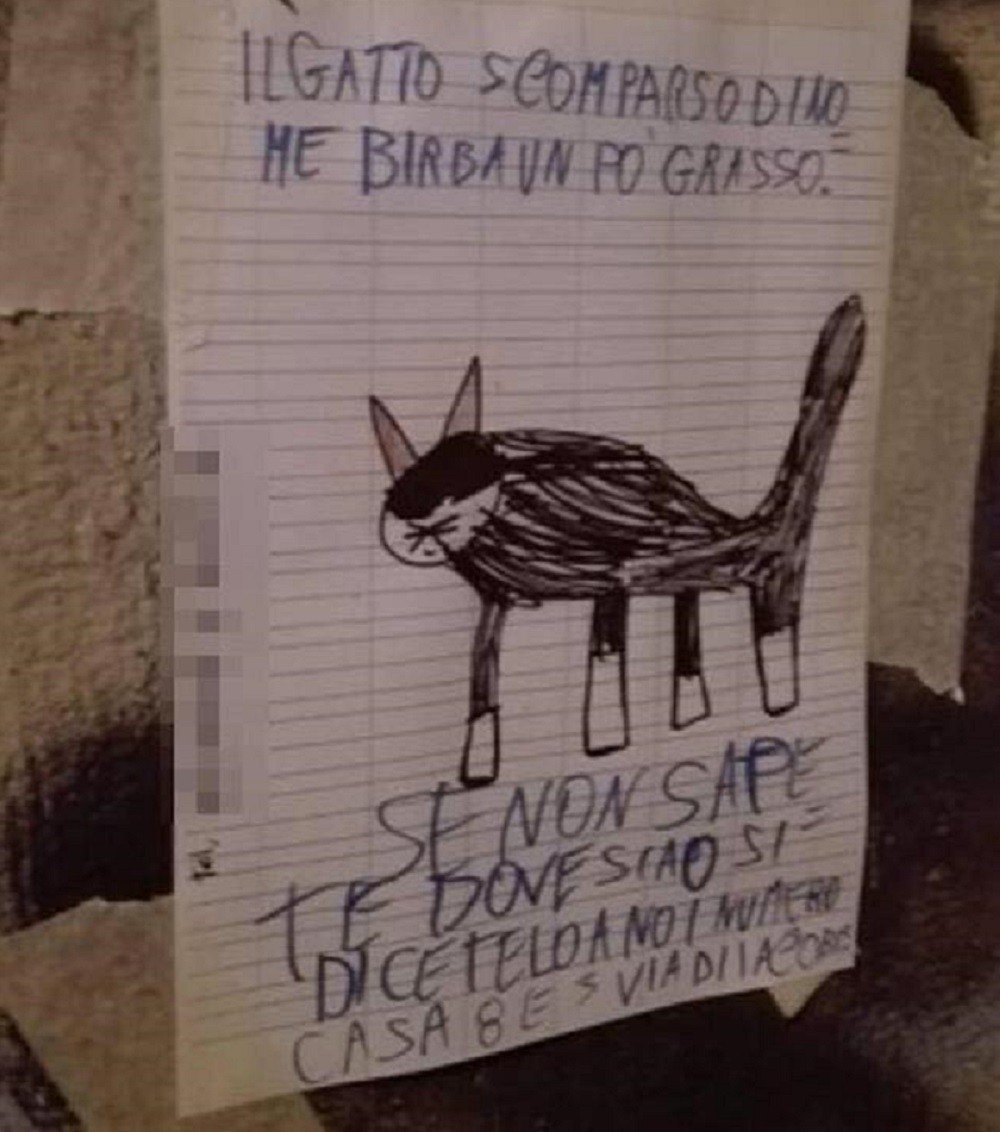 ILGATTO SCOMPARSO DI NO=
ME BIRBA UN PO' GRASSO.
SE NON SAPE=
TE DOVE SIA O SI
DICETELO A NOI NUMERO
CASA 8 E 5 VIA DI
Tel.